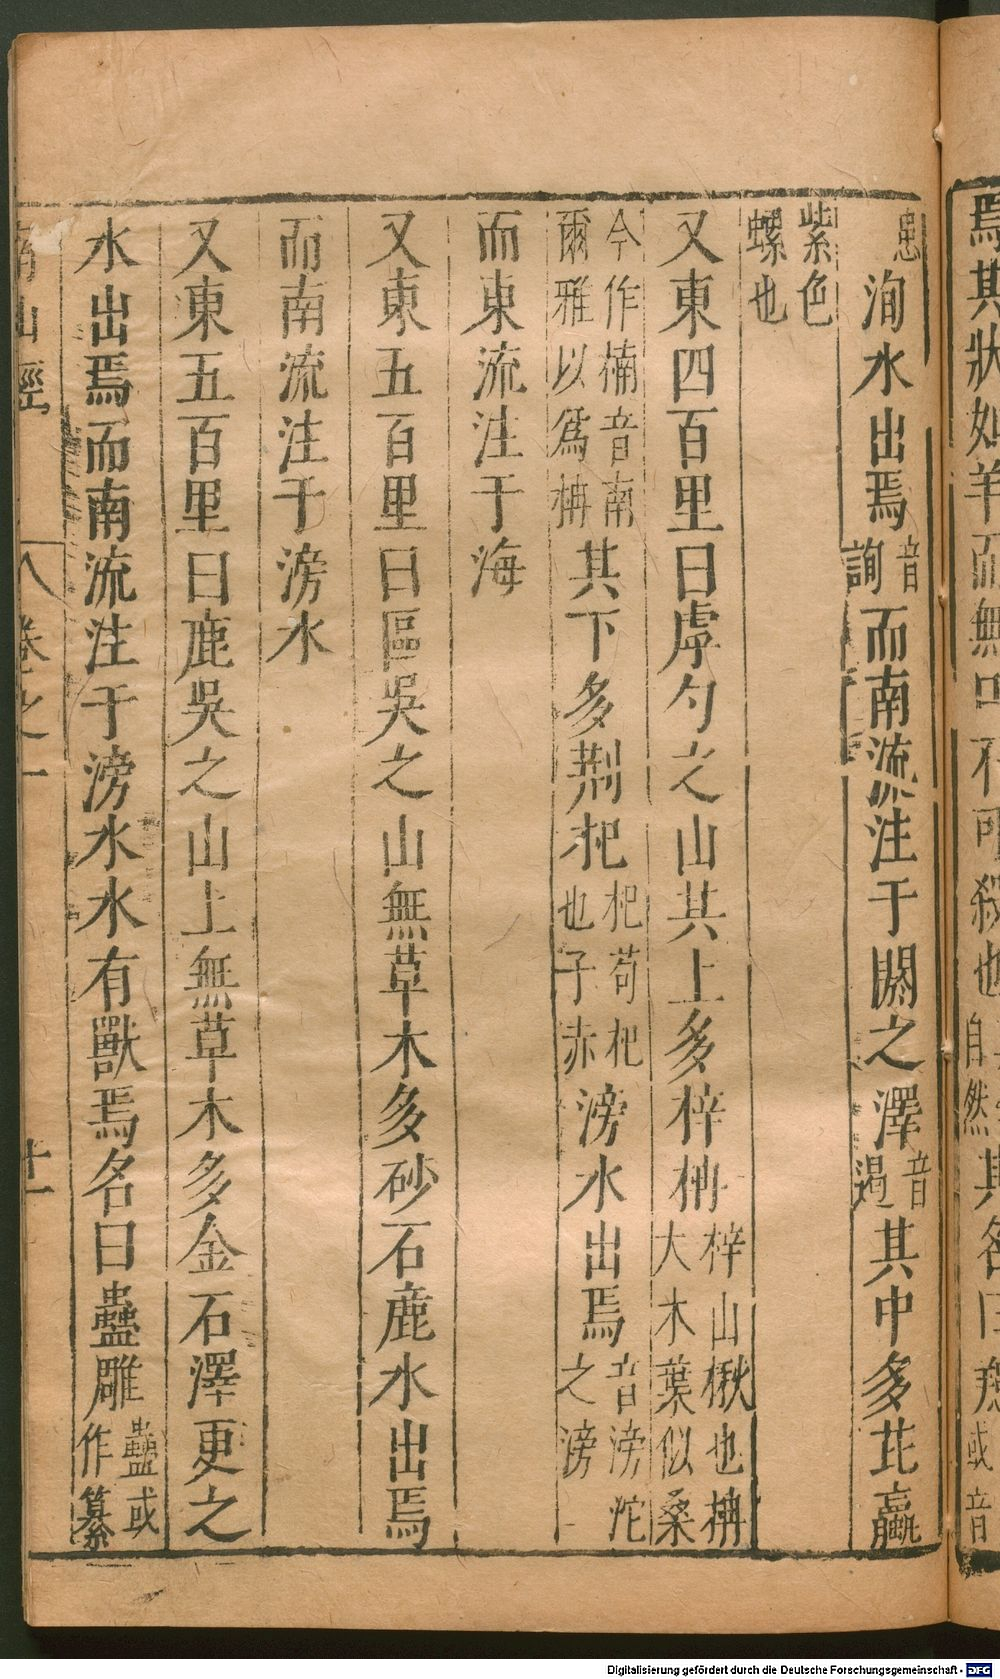 焉其狀如羊而無口不可殺也自然其名曰䍺或音
患洵水出焉音詢而南流注于閼之澤音遏其中多茈蠃
紫色螺也
又東四百里曰虖勺之山其上多梓枏梓山楸也枏大木葉似桑
今作楠音南爾雅以爲枏其下多荆杞杞苟杞也子赤滂水出焉音滂沱之滂
而東流注于海
又東五百里曰區吳之山無草木多砂石鹿水出焉
而南流注于滂水
又東五百里曰鹿吳之山上無草木多金石澤更之
水出焉而南流注于滂水水有獸焉名曰蠱雕蠱或作纂
南山經 卷之一 十一
Digitalisierung gefördert durch die Deutsche Forschungsgemeinschaft - DFG